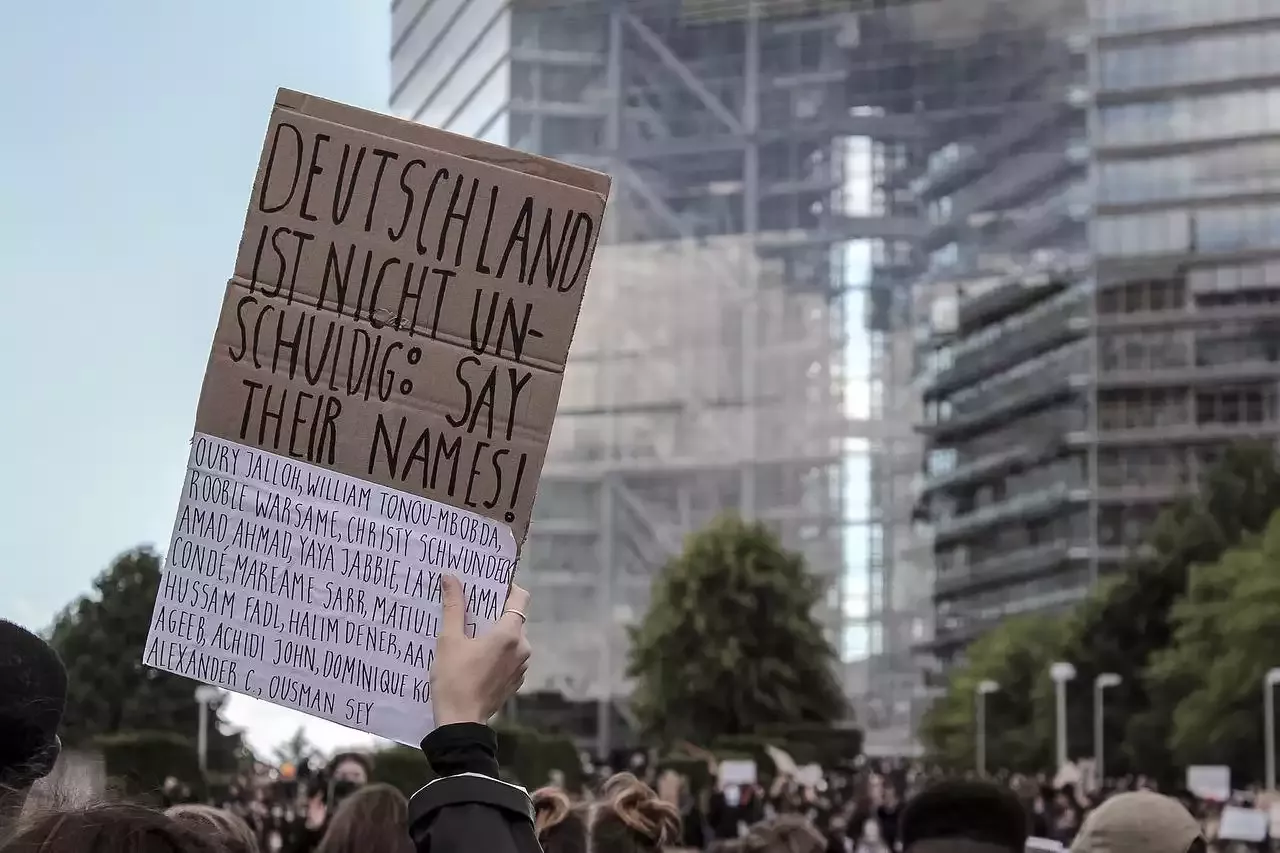 DEUTSCHLAND
IST NICHT UN-
SCHULDIG: SAY
THEIR NAMES!
OURY JALLOH, WILLIAM TONOU-MBOBDA,
ROOBLE WARSAME, CHRISTY SCHWUNDECK
AMAD AHMAD, YAYA JABBIE, LAYE
CONDÉ, MAREAME SARR,
HUSSAM FADL, HALIM DENER,
AGEEB, ACHIDI JOHN, DOMINIQUE
ALEXANDER C., OUSMAN SEY